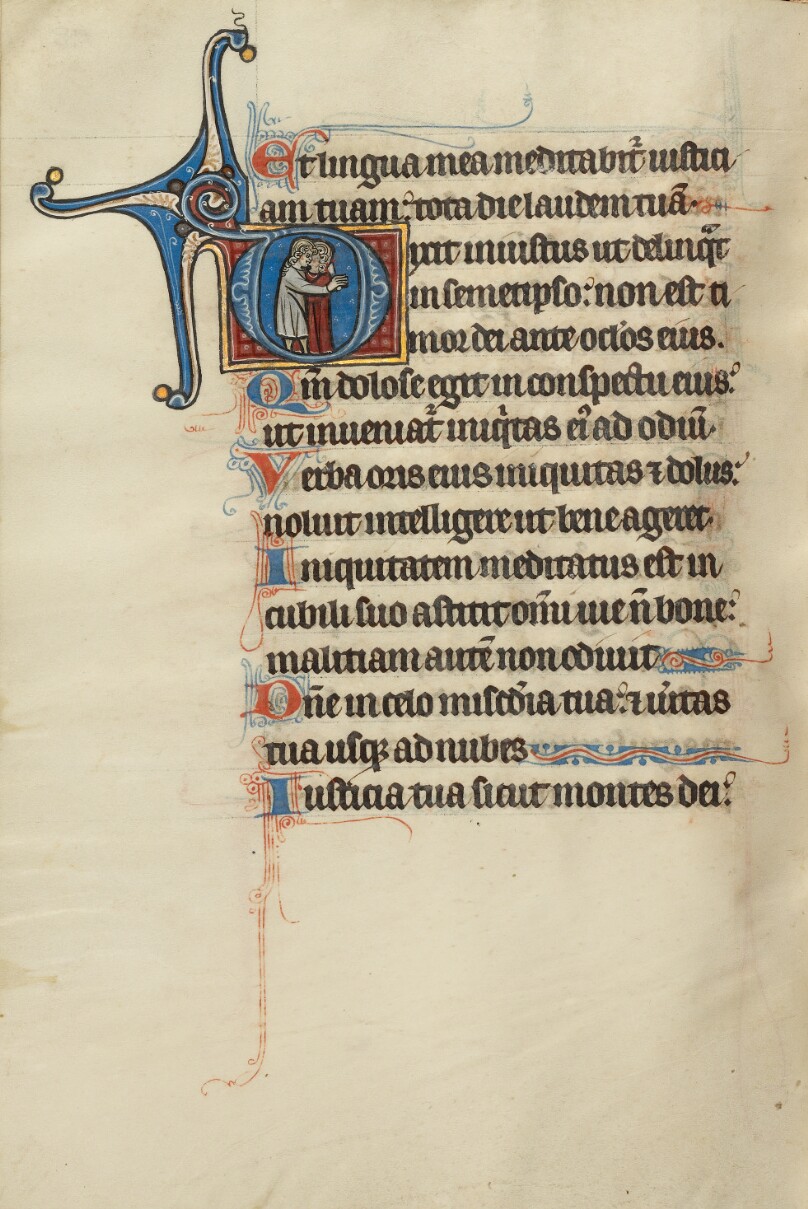 Et lingua mea meditabit᷑ iustici
am tuam: tota die laudem tuā.
Dixit iniustus ut delinqͣt
in semetipso: non est ti
mor dei ante oc̄los eius.
Qm̄ dolose egit in conspectu eius:
ut inueniat᷑ iniqⁱtas eiꝰ ad odiū.
Verba oris eius iniquitas ⁊ dolus:
noluit intelligere ut bene ageret.
Iniquitatem meditatus est in
cubili suo astitit om̄i uie n̄ bone:
malitiam autē non odiuit
Dn̄e in celo misc̄dia tua: ⁊ ūitas
tua usqꝫ ad nubes
Iusticia tua sicut montes dei: